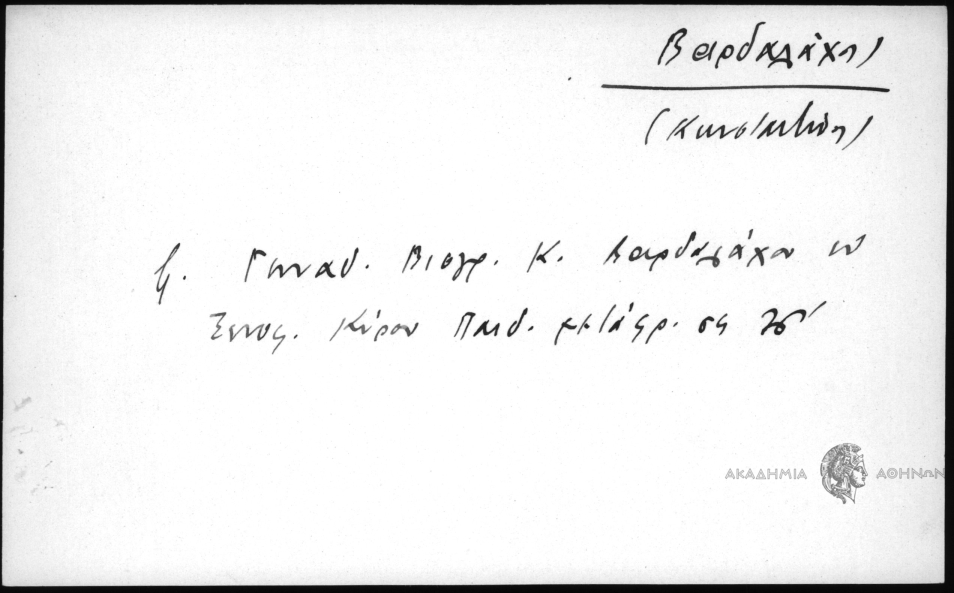 Βαρδαλάχης
(Κωνσταντῖνος)
Γενναδ. Βιογρ. Κ. Βαρδαλάχου ἐν
Ξενοφ. Κύρου Παιδ. μετάφρ. σελ
ΑΚΑΔΗΜΙΑ ΑΘΗΝΩΝ